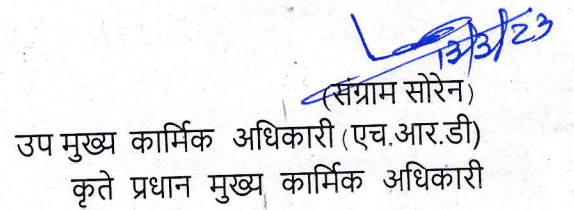 13/3/23
(संग्राम सोरेन)
उप मुख्य कार्मिक अधिकारी (एच.आर.डी)
कृते प्रधान मुख्य कार्मिक अधिकारी